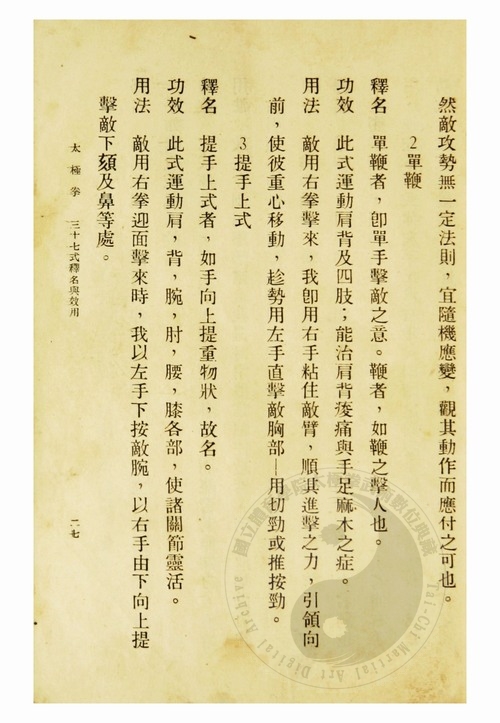 然敵攻勢無一定法則，宜隨機應變，觀其動作而應付之可也。
2 單鞭
釋名　單鞭者，卽單手擊敵之意。鞭者，如鞭之擊人也。
功效　此式運動肩背及四肢；能治肩背痠痛與手足麻木之症。
用法　敵用右拳擊來，我卽用右手粘住敵臂，順其進擊之力，引領向
前，使彼重心移動，趁勢用左手直擊敵胸部—用切勁或推按勁。
3 提手上式
釋名　提手上式者，如手向上提重物狀，故名。
功效　此式運動肩，背，腕，肘，腰，膝各部，使諸關節靈活。
用法　敵用右拳迎面擊來時，我以左手下按敵腕，以右手由下向上提
擊敵下頦及鼻等處。
太極拳　三十七式釋名與效用　二七
國立體育學院太極拳武藝數位典藏
Tai-Chi Martial Art Digital Archive